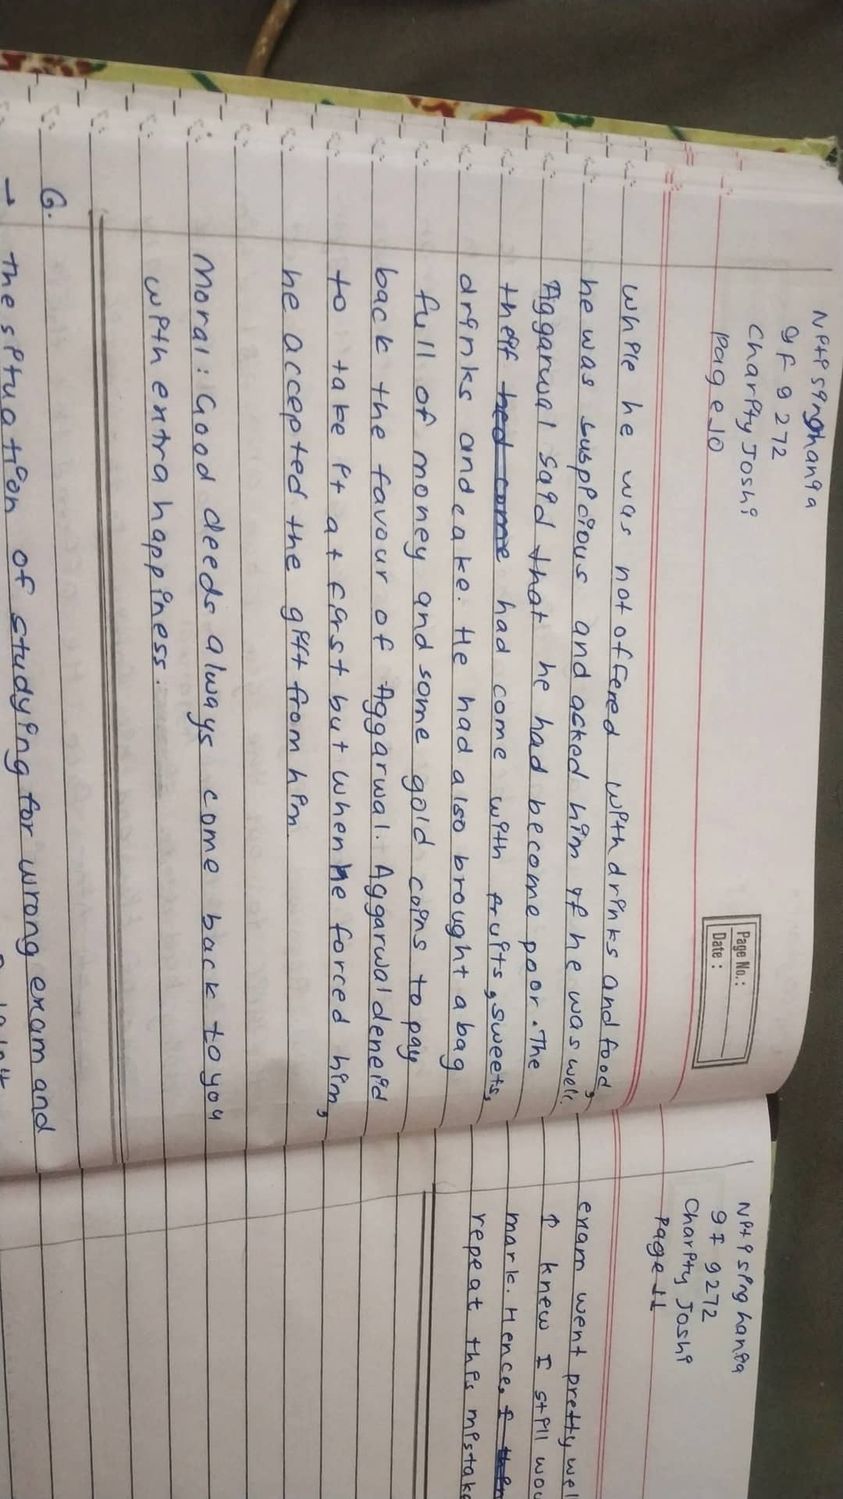 Niti singhania
9F 9272
Charity Joshi
Page 10
Page No.:
Date:
while he was not offered with drinks and food,
he was suspicious and asked him if he was well.
Aggarwal said that he had become poor. The
theif had come had come with fruits, sweets,
drinks and cake. He had also brought a bag
full of money and some gold coins to pay
back the favour of Aggarwal. Aggarwal deneid
to take it at first but when he forced him,
he accepted the gift from him
Moral: Good deeds always come back to you
with extra happiness.
6.
→ The situation of studying for wrong exam and
Niti singhania
9F 9272
Charity Joshi
Page 11
exam went pretty well
I knew I still
mark. Hence, I
repeat this